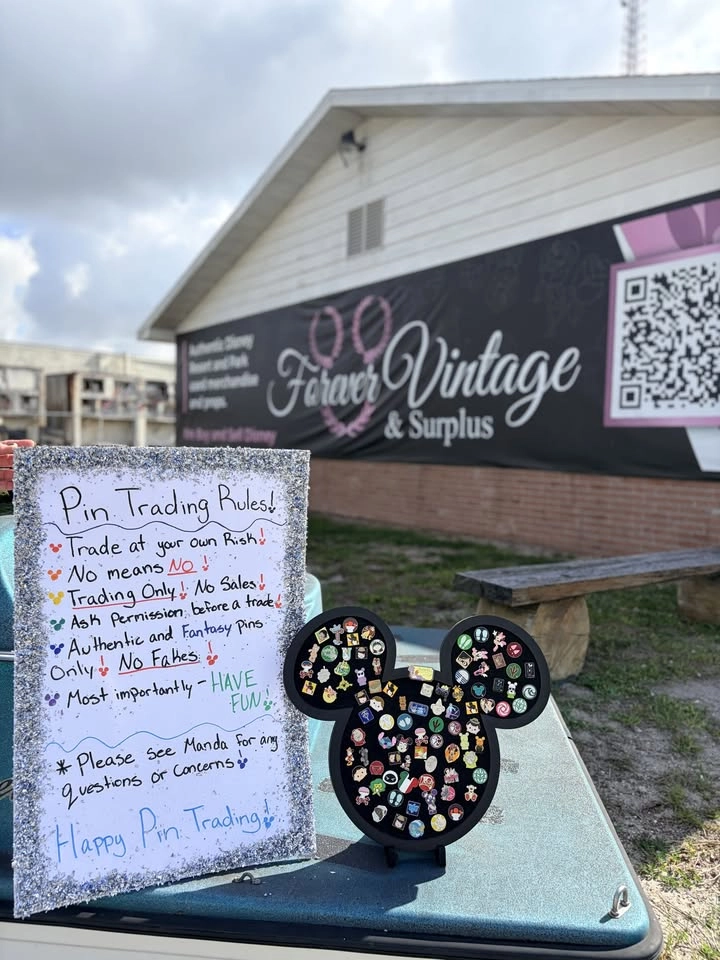 Authentic Disney
Resort and Park
used merchandise
and props.
We Buy and Sell Disney
Forever Vintage
& Surplus
Pin Trading Rules!
Trade at your own Risk!
No means NO!
Trading Only! No Sales!
Ask Permission before a trade!
Authentic and Fantasy pins
Only! No Fakes!
Most importantly - HAVE
FUN!
* Please see Manda for any
questions or concerns!
Happy Pin Trading!